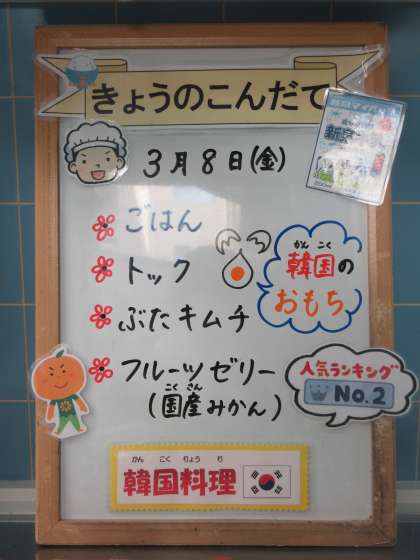 きょうのこんだて
3月8日(金)
ごはん
トック
ぶたキムチ
フルーツゼリー
(国産みかん)
こくさん
韓国の
かんこく
おもち
人気ランキング
No.2
かんこくりょうり
韓国料理